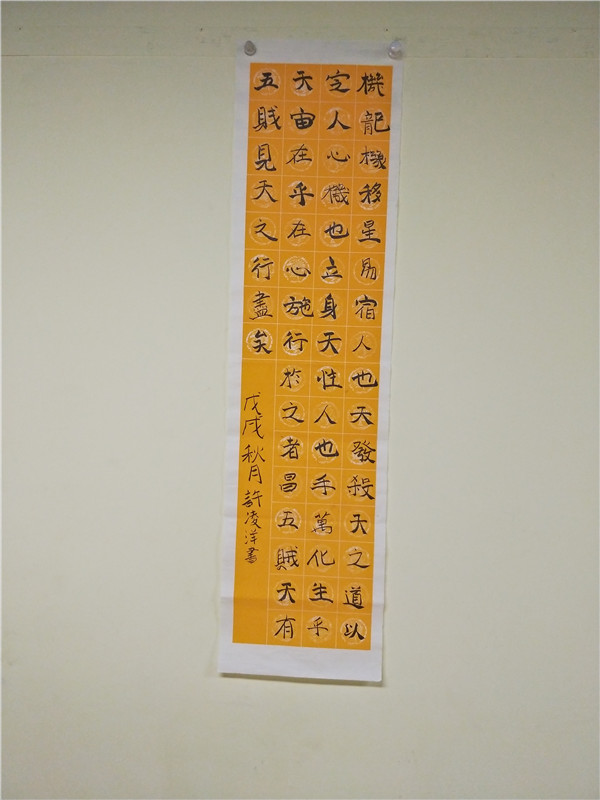 機龍機移星易宿人也天發殺天之道以
定人心機也立身天性人也手萬化生乎
天宙在乎在心施行於之者昌五賊天有
五賊見天之行盡矣
戊戌秋月許凌洋書